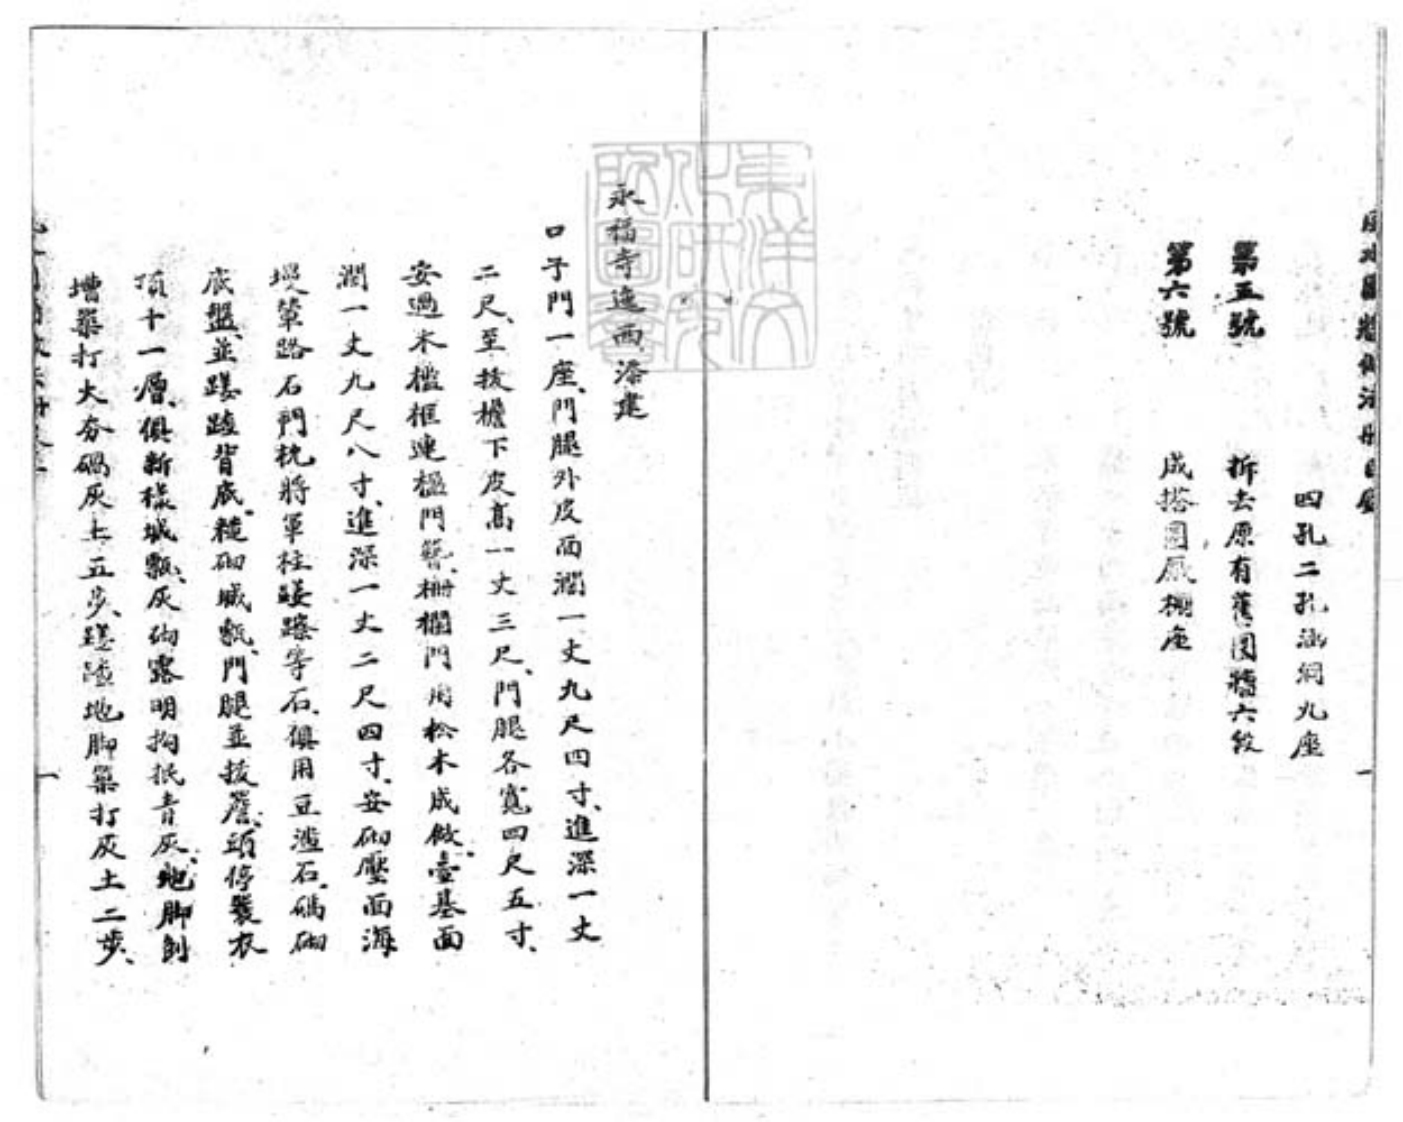 四孔二孔涵洞九座
第五號　拆去原有舊圍牆六段
第六號　成搭圈廠棚座
一
永福寺迤西添建
口子門一座、門腿外皮面濶一丈九尺四寸、進深一丈
二尺、至拔檐下皮高一丈三尺、門腿各寬四尺五寸、
安過木檻框連楹門簪、柵欄門用松木成做、臺基面
濶一丈九尺八寸、進深一丈二尺四寸、安砌壓面海
墁輦路石門枕將軍柱等石、俱用豆渣石、碼砌
底盤、並背底、糙砌城甎、門腿並拔簷、頭停蓑衣
頂十一層、俱新樣城甎、灰砌露明抅抿青灰、地脚刨
槽築打大夯碢灰土五步、地脚築打灰土二步、
一
東洋文化研究所圖書